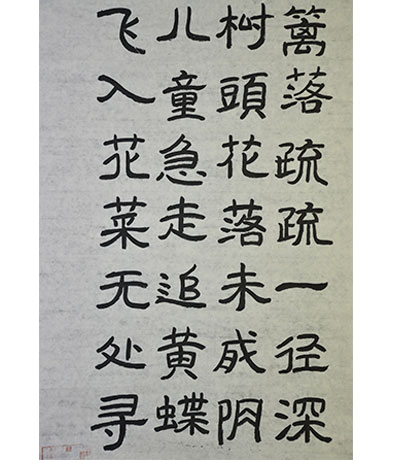 篱落疏疏一径深
树頭花落未成阴
儿童急走追黄蝶
飞入花菜无处寻